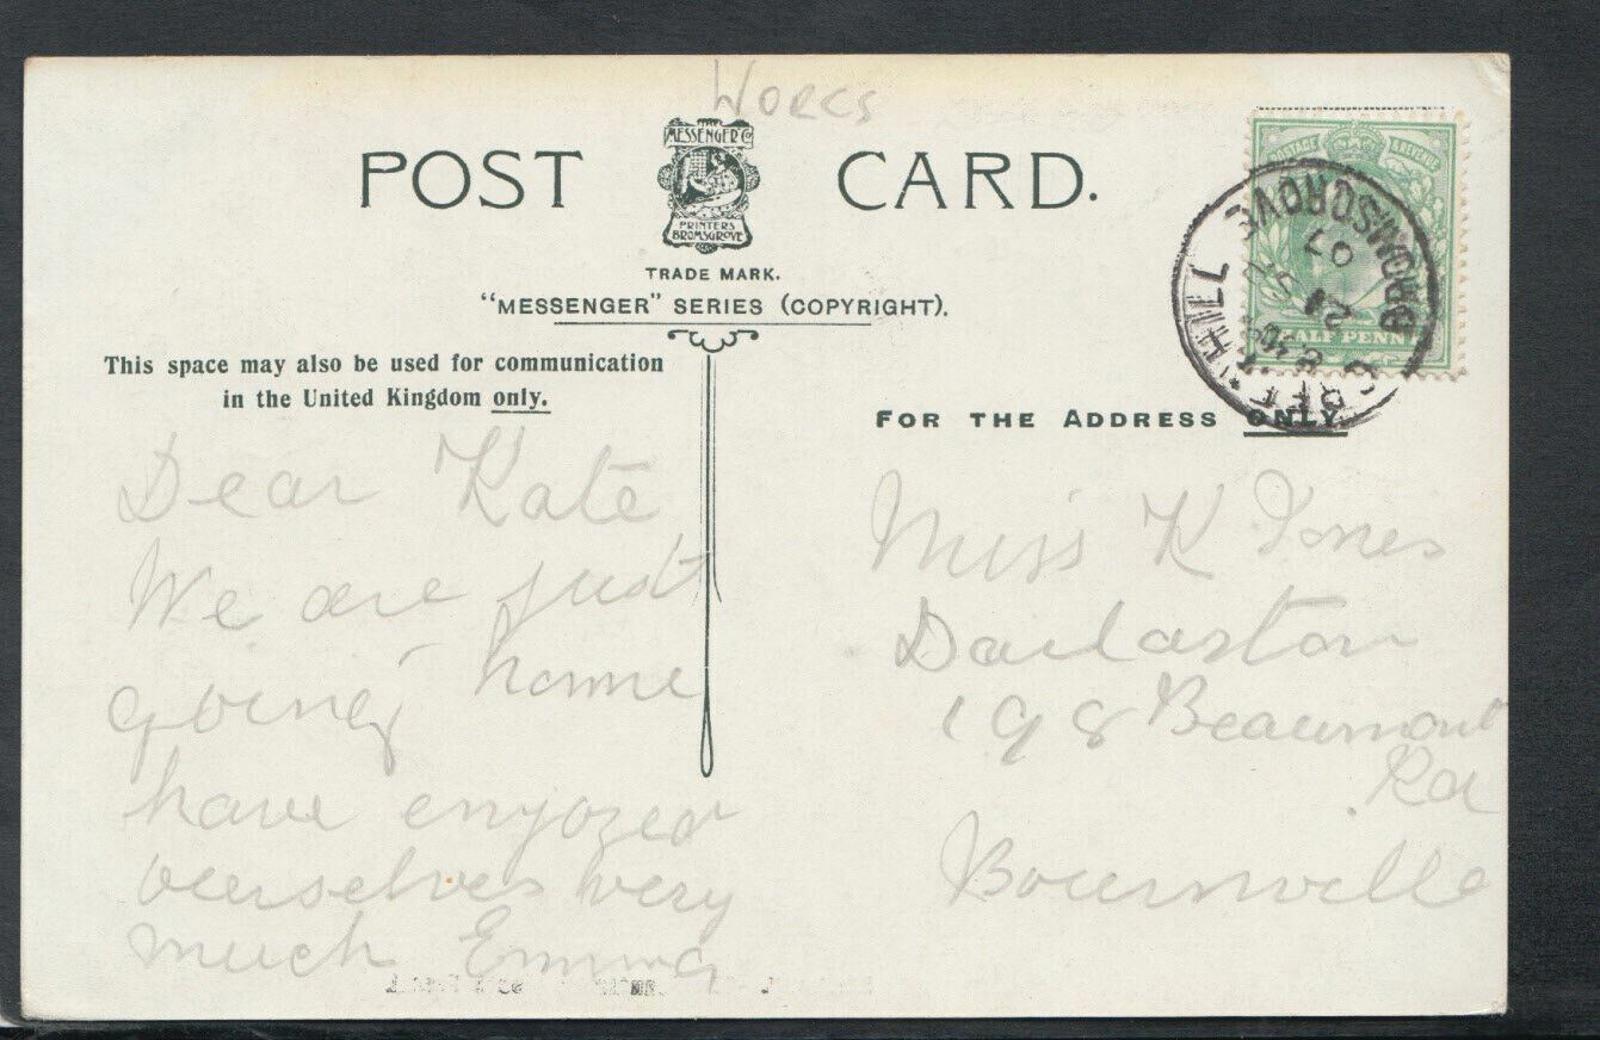 Worcs
POST CARD.
MESSENGER Co
PRINTERS
BROMSGROVE
TRADE MARK.
"MESSENGER" SERIES (COPYRIGHT).
POSTAGE & REVENUE
HALF PENNY
BROMSGROVE
HILL
07
This space may also be used for communication
in the United Kingdom only.
FOR THE ADDRESS ONLY.
Dear Kate
We are just
going home
have enjoyed
ourselves very
much Emma
Miss K Jones
Darlaston
198 Beaumont
Rd
Bournville